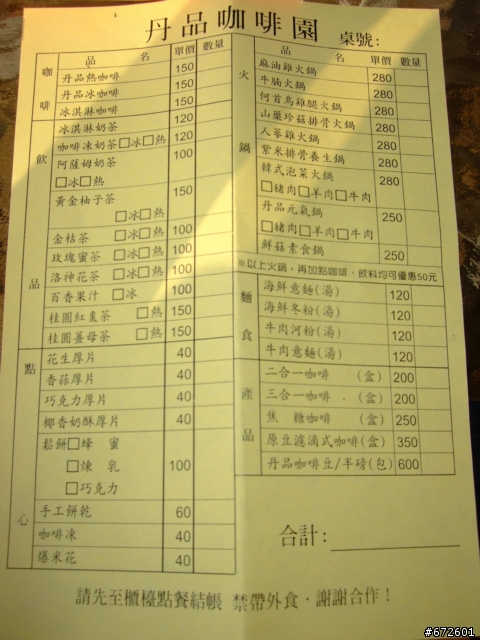 丹品咖啡園 桌號：
品 名 單價 數量
咖啡
丹品熱咖啡 150
丹品冰咖啡 150
冰淇淋咖啡 150
飲品
冰淇淋奶茶 120
咖啡凍奶茶□冰□熱 120
阿薩姆奶茶 100
□冰□熱
黃金柚子茶 150
□冰□熱
金桔茶 □冰□熱 100
玫瑰蜜茶 □冰□熱 100
洛神花茶 □冰□熱 100
百香果汁 □冰 100
桂圓紅棗茶 □熱 150
桂圓薑母茶 □熱 150
點心
花生厚片 40
香蒜厚片 40
巧克力厚片 40
椰香奶酥厚片 40
鬆餅□蜂 蜜
□煉 乳 100
□巧克力
手工餅乾 60
咖啡凍 40
爆米花 40
品 名 單價 數量
火鍋
麻油雞火鍋 280
牛腩火鍋 280
何首烏雞腿火鍋 280
山藥珍菇排骨火鍋 280
人蔘雞火鍋 280
紫米排骨養生鍋 280
韓式泡菜火鍋 280
□豬肉□羊肉□牛肉
丹品元氣鍋 250
□豬肉□羊肉□牛肉
鮮菇素食鍋 250
※以上火鍋，再加點咖啡、飲料均可優惠50元
麵食
海鮮意麵(湯) 120
海鮮冬粉(湯) 120
牛肉河粉(湯) 120
牛肉意麵(湯) 120
產品
二合一咖啡 (盒) 200
三合一咖啡 (盒) 200
焦 糖咖啡 (盒) 250
原豆濾滴式咖啡(盒) 350
丹品咖啡豆/半磅(包) 600
合計：
請先至櫃檯點餐結帳 禁帶外食‧謝謝合作！
#672601